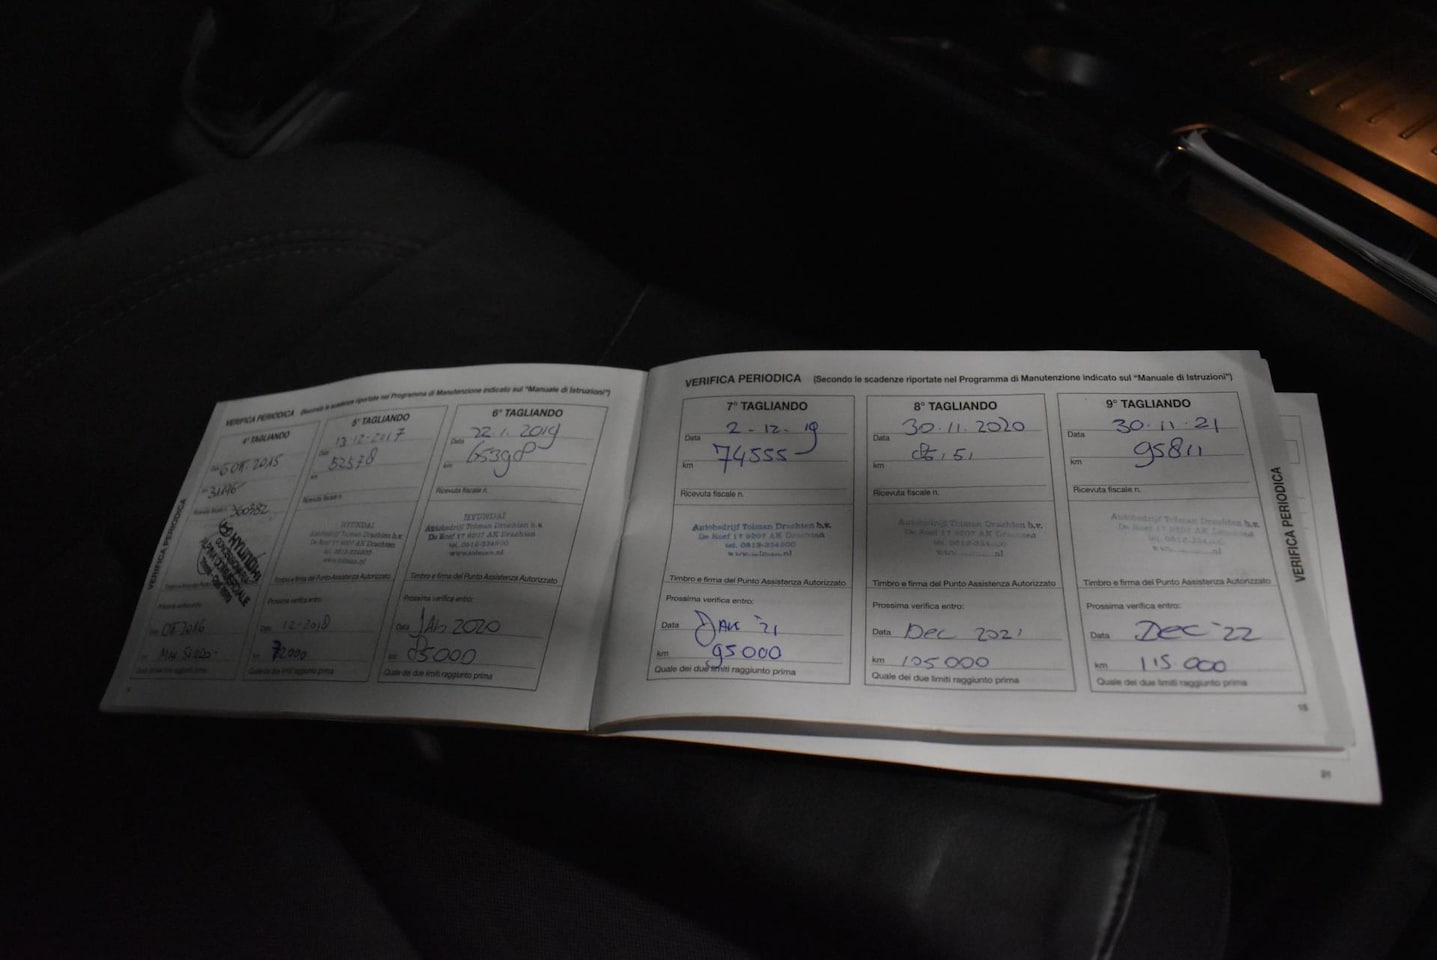 VERIFICA PERIODICA (Secondo le scadenze riportate nel Programma di Manutenzione indicato sul "Manuale di Istruzioni")
4° TAGLIANDO
6 OTT. 2015
360982
HYUNDAI
VERIFICA PERIODICA
5° TAGLIANDO
13-12-2017
52578
Ricevuta fiscale n.
HYUNDAI
Autobedrijf Tolman Drachten
De Roef 17 9207 AK Drachten
Timbro e firma del Punto Assistenza Autorizzato
Prossima verifica entro:
Data 12-2018
km 72000
Quale dei due limiti raggiunto prima
6° TAGLIANDO
Data 22.1.2019
km 65398
Ricevuta fiscale n.
HYUNDAI
Autobedrijf Tolman Drachten b.v.
De Roef 17 9207 AK Drachten
www.tolman.nl
Timbro e firma del Punto Assistenza Autorizzato
Prossima verifica entro:
Data Jan 2020
km 85000
Quale dei due limiti raggiunto prima
VERIFICA PERIODICA (Secondo le scadenze riportate nel Programma di Manutenzione indicato sul "Manuale di Istruzioni")
7° TAGLIANDO
Data 2-12-19
km 74555
Ricevuta fiscale n.
Autobedrijf Tolman Drachten b.v.
De Roef 17 9207 AK Drachten
Timbro e firma del Punto Assistenza Autorizzato
Prossima verifica entro:
Data Jan '21
km 95000
Quale dei due limiti raggiunto prima
8° TAGLIANDO
Data 30.11.2020
km
Ricevuta fiscale n.
Autobedrijf Tolman Drachten b.v.
De Roef 17 9207 AK Drachten
Timbro e firma del Punto Assistenza Autorizzato
Prossima verifica entro:
Data Dec 2021
km 105000
Quale dei due limiti raggiunto prima
9° TAGLIANDO
Data 30.11.21
km 95811
Ricevuta fiscale n.
Autobedrijf Tolman Drachten b.v.
De Roef 17 9207 AK Drachten
Timbro e firma del Punto Assistenza Autorizzato
Prossima verifica entro:
Data Dec '22
km 115 000
Quale dei due limiti raggiunto prima
VERIFICA PERIODICA